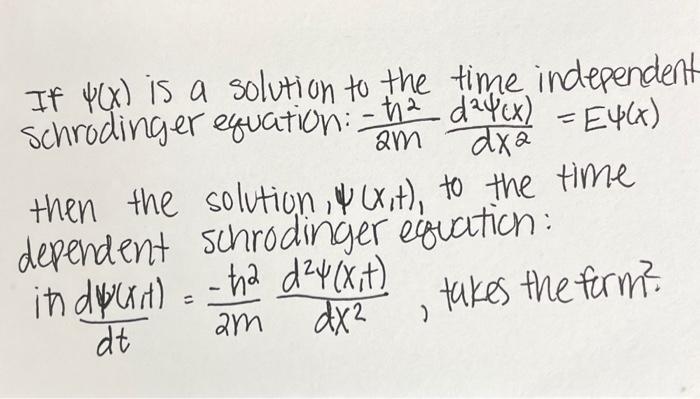 If ψ(x) is a solution to the time independent
schrodinger equation: -ħ²/2m d²ψ(x)/dx² = Eψ(x)
then the solution, ψ(x,t), to the time
dependent schrodinger equation:
iħ dψ(x,t)/dt = -ħ²/2m d²ψ(x,t)/dx² , takes the form?